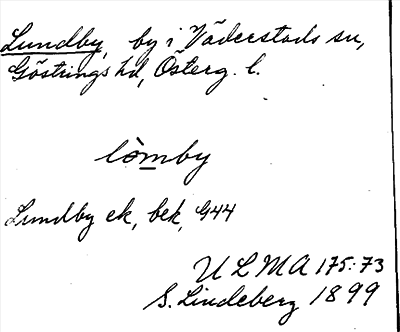 Lundby, by i Väderstads sn,
Göstrings hd, Österg. l.
lòmby
Lundby ek, bek, G44
ULMA 175:73
S. Lindeberg 1899